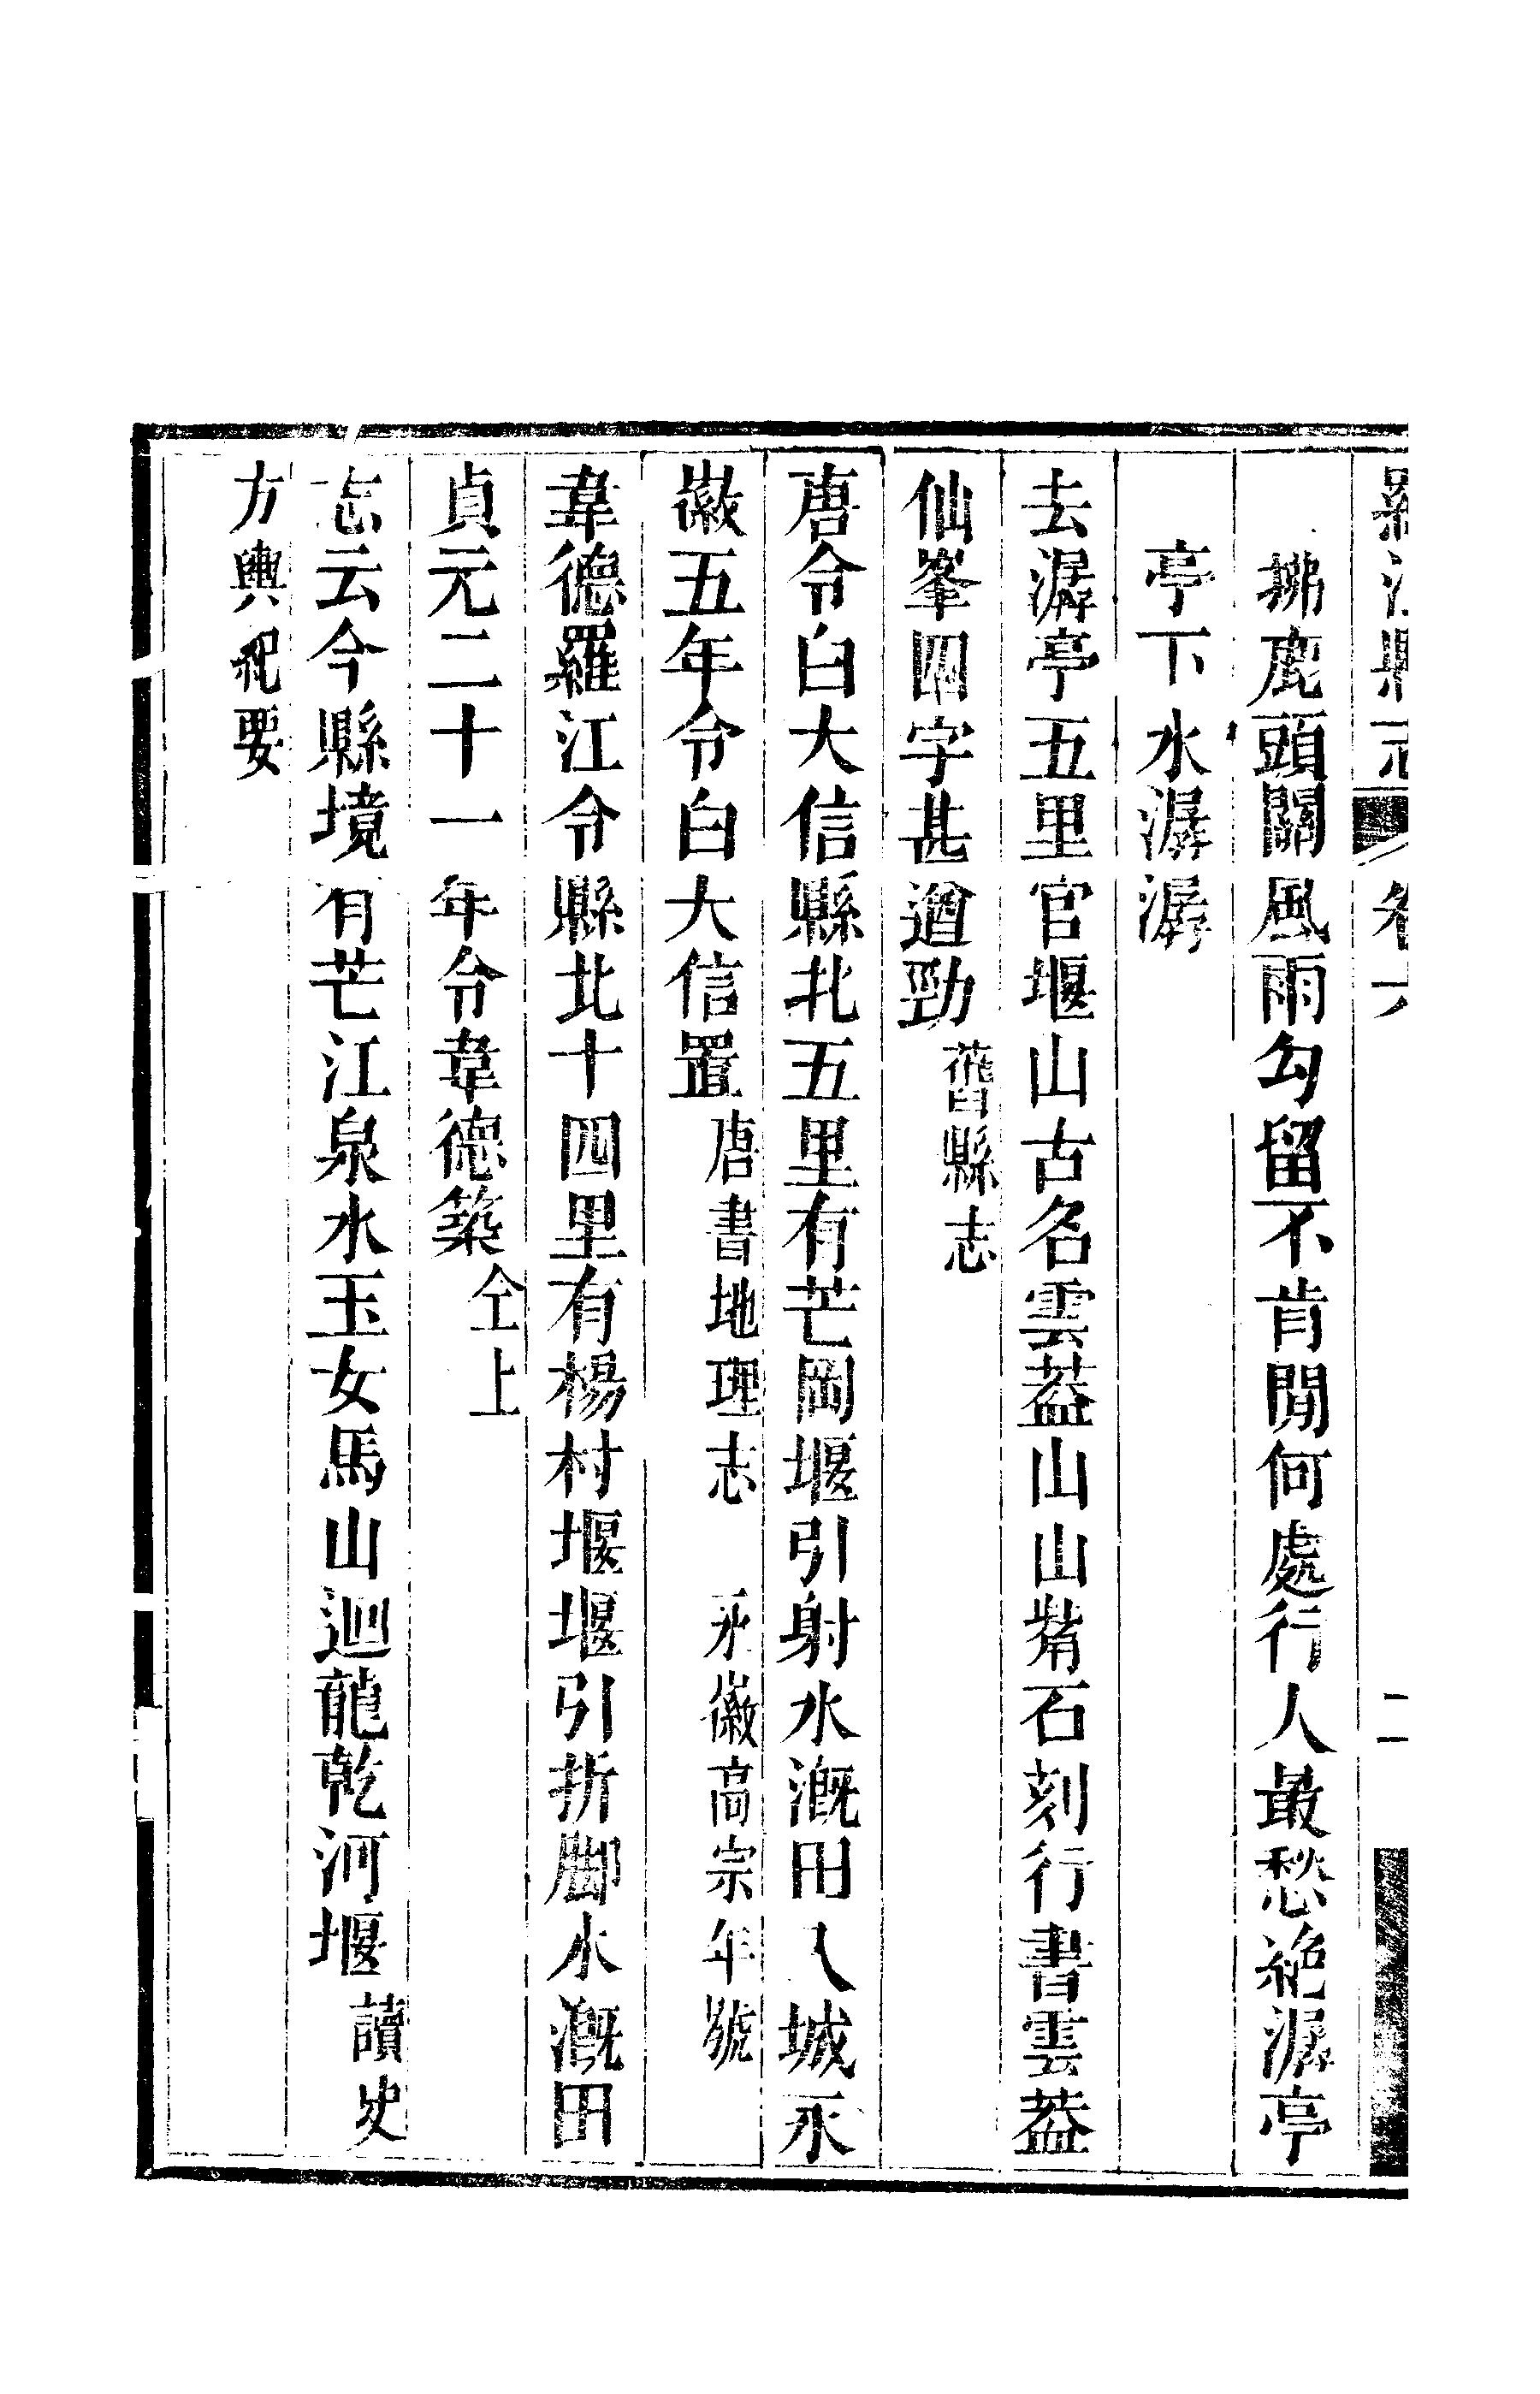 羅江縣志 卷六 二
拂鹿頭關風雨勾留不肯閒何處行人最愁絶潺亭
亭下水潺潺
去潺亭五里官堰山古名雲葢山山觜石刻行書雲葢
仙峯四字甚遒勁舊縣志
唐令白大信縣北五里有芒岡堰引射水漑田入城永
徽五年令白大信置唐書地理志 永徽高宗年號
韋德羅江令縣北十四里有楊村堰堰引折脚水漑田
貞元二十一年令韋德築仝上
志云今縣境有芒江泉水玉女馬山迴龍乾河堰讀史
方輿紀要